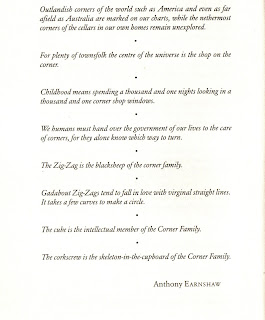 Outlandish corners of the world such as America and even as far
afield as Australia are marked on our charts, while the nethermost
corners of the cellars in our own homes remain unexplored.
•
For plenty of townsfolk the centre of the universe is the shop on the
corner.
•
Childhood means spending a thousand and one nights looking in a
thousand and one corner shop windows.
•
We humans must hand over the government of our lives to the care
of corners, for they alone know which way to turn.
•
The Zig-Zag is the blacksheep of the corner family.
•
Gadabout Zig-Zags tend to fall in love with virginal straight lines.
It takes a few curves to make a circle.
•
The cube is the intellectual member of the Corner Family.
•
The corkscrew is the skeleton-in-the-cupboard of the Corner Family.
Anthony EARNSHAW